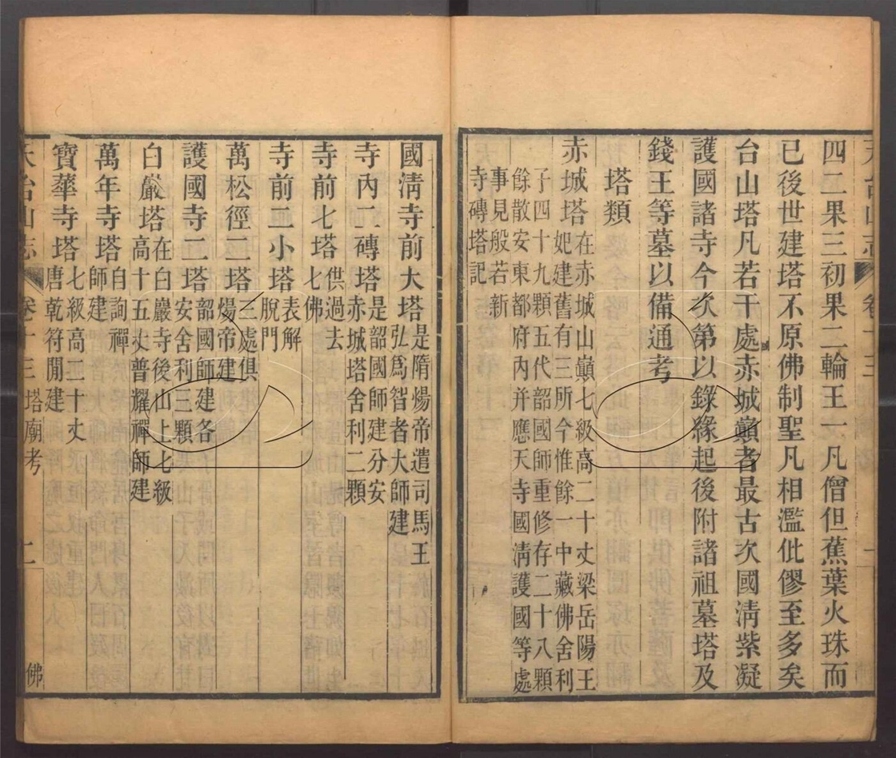 四二果三初果二輪王一凡僧但蕉葉火珠而
已後世建塔不原佛制聖凡相濫仳僇至多矣
台山塔凡若干處赤城巔者最古次國淸紫凝
護國諸寺今次第以錄緣起後附諸祖墓塔及
錢王等墓以備通考
塔類
赤城塔
在赤城山巔七級高二十丈梁岳陽王
妃建舊有三所今惟餘一中藏佛舍利
子四十九顆五代韶國師重修存二十八顆
餘散安東都府內并應天寺國淸護國等處
事見般若新
寺磚塔記
國淸寺前大塔
是隋煬帝遣司馬王
弘爲智者大師建
寺內二磚塔
是韶國師建分安
赤城塔舍利二顆
寺前七塔
供過去
七佛
寺前二小塔
表解
脫門
萬松徑二塔
三處俱
煬帝建
護國寺二塔
韶國師建各
安舍利三顆
白巖塔
在白巖寺後山上七級
高十五丈普耀禪師建
萬年寺塔
自詢禪
師建
寶華寺塔
七級高二十丈
唐乾符閒建
天台山志
卷十三
塔廟考
二
佛